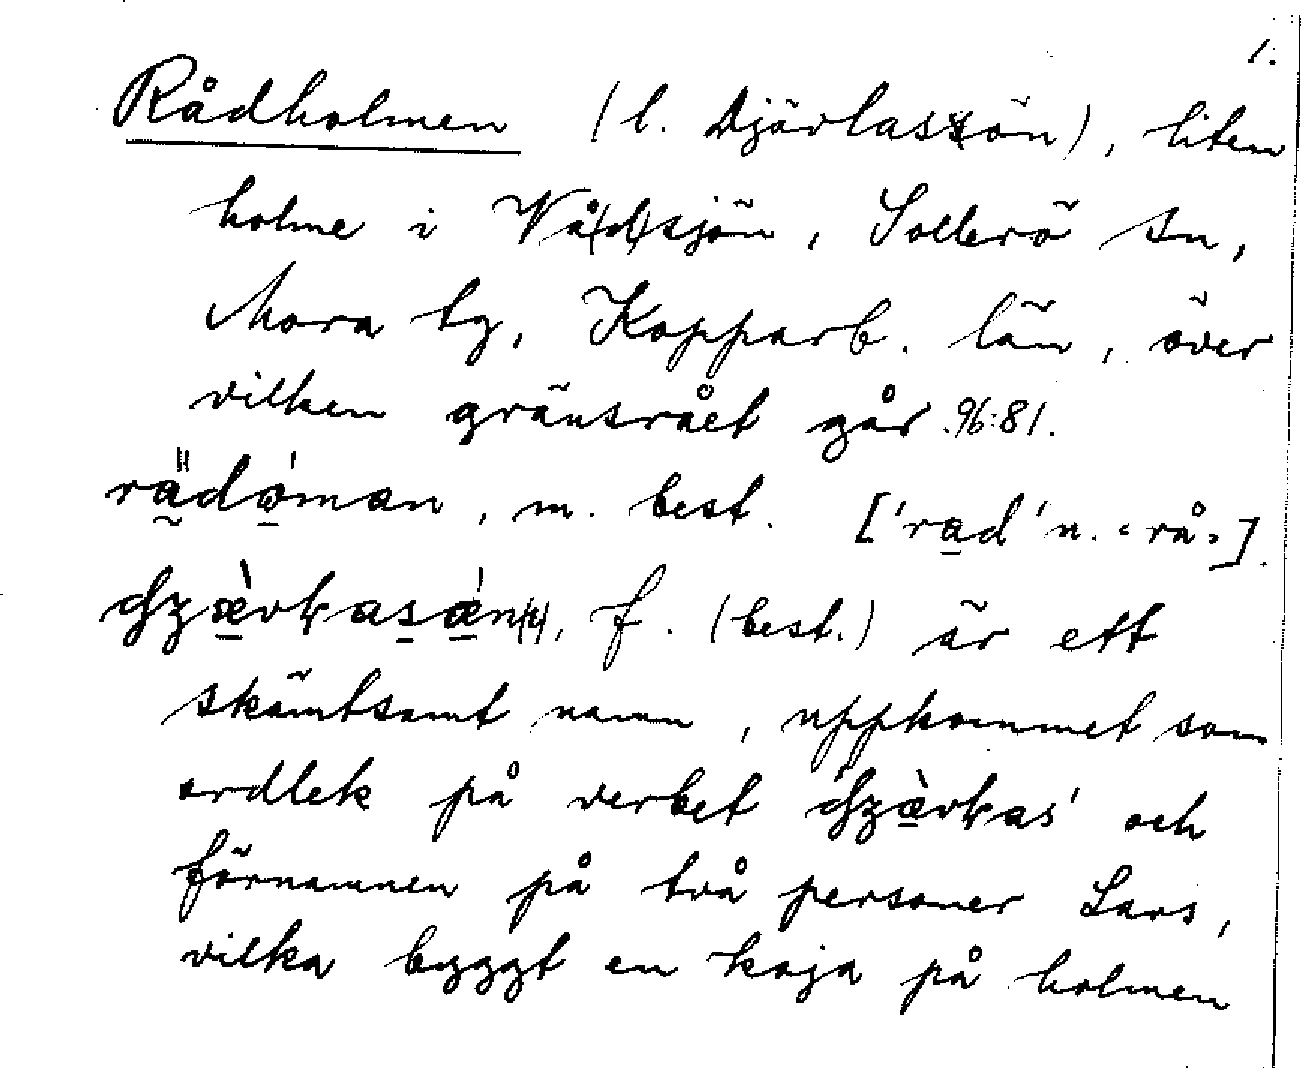 1.
Rådholmen (l. Djärlassön), liten
holme i Vå(d)sjön, Sollerö sn,
Mora tg, Kopparb. län, över
vilken gränsrået går. 96:81.
rädȯman, m. best. ['rad' n. «rå»].
f. (best.) är ett
skämtsamt namn, uppkommet som
ordlek på verbet och
förnamnen på två personer Lars,
vilka byggt en koja på holmen